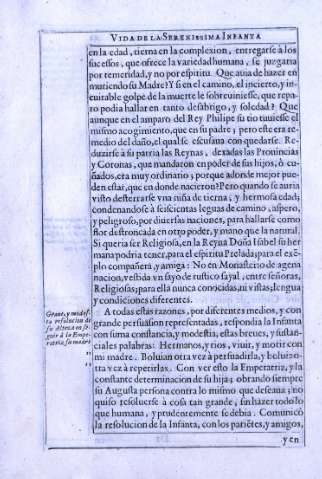 VIDA DE LA SERENISSIMA INFANTA
en la edad, tierna en la complexion, entregarse a los
sucessos, que ofrece la variedad humana, se juzgaria
por temeridad, y no por espiritu. Que auia de hazer en
muriendo su Madre? Y si en el camino, el incierto, y in-
euitable golpe de la muerte le sobreuiniesse, que repa-
ro podia hallar en tanto desabrigo, y soledad? Que
aunque en el amparo del Rey Philipe su tio tuuiesse el
mismo acogimiento, que en su padre; pero este era re-
medio del daño, el qual se escusaua con quedarse. Re-
duzirse à su patria las Reynas, dexadas las Prouincias
y Coronas, que mandaron en poder de sus hijos, ò cu-
ñados, era muy ordinario; porque adonde mejor pue-
den estar, que en donde nacieron? Pero quando se auria
visto desterrarse vna niña de tierna, y hermosa edad;
condenandose à seiscientas leguas de camino, aspero,
y peligroso, por diuersas naciones, para hallarse como
flor destroncada en otro poder, y mano que la natural.
Si queria ser Religiosa, en la Reyna Doña Isabel su her
mana podria tener, para el espiritu Prelada; para el exē-
plo compañera, y amiga: No en Monasterio de agena
nacion, vestida vn sayo de rustico sayal, entre señoras,
Religiosas; para ella nunca conocidas, ni vistas; lengua
y condiciones diferentes.
A todas estas razones, por diferentes medios, y con
grande persuasion representadas, respondia la Infanta
con suma constancia, y modestia, estas breues, y sustan-
ciales palabras: Hermanos, y rios, viuir, y morir con
mi madre. Boluian otra vez à persuadirla, y boluia o-
tra vez à repetirlas. Con ver esto la Emperatriz, y la
constante determinacion de su hija; obrando siempre
su Augusta persona contra lo mismo que desseaua; no
quiso resoluerse à cosa tan grande, sin hazer todo lo
que humana, y prudentemente se debia. Comunicò
la resolucion de la Infanta, con los pariētes, y amigos,
y en
Grande, y modes-
ta resolucion de
su Alteza en se-
guir à la Empe-
ratriz su madre